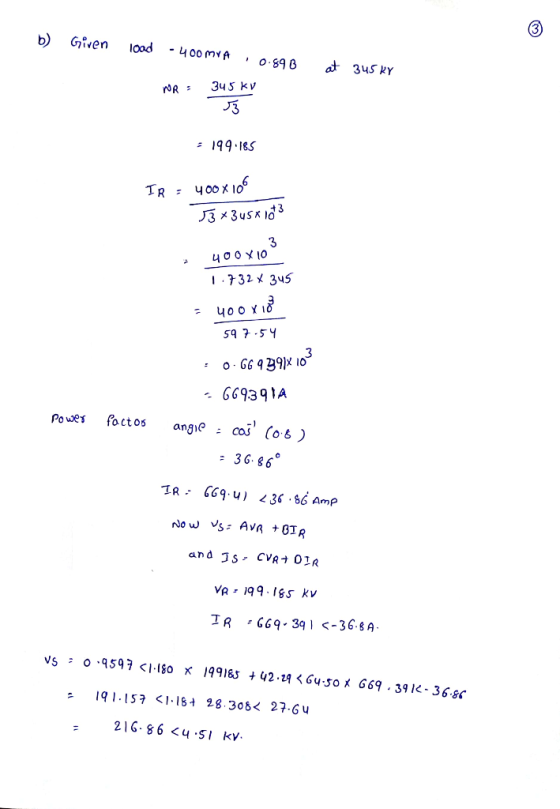 ③
b) Given load - 400 mvA , 0.89B at 345 kV
NR = 345 kV / √3
= 199.185
IR = 400 x 10^6 / √3 x 345 x 10^+3
= 400 x 10^3 / 1.732 x 345
= 400 x 10^3 / 597.54
= 0.669391 x 10^3
= 669391A
Power factos angle = cos^-1 (0.8)
= 36.86°
IR = 669.41 <36.86 Amp
Now VS = AVR + BIR
and IS = CVR + DIR
VR = 199.185 kV
IR = 669.391 <-36.8 A.
VS = 0.9597 <1.180 x 199185 + 42.29 <64.50 x 669.391<-36.86
= 191.157 <1.18+ 28.308< 27.64
= 216.86 <4.51 kV.